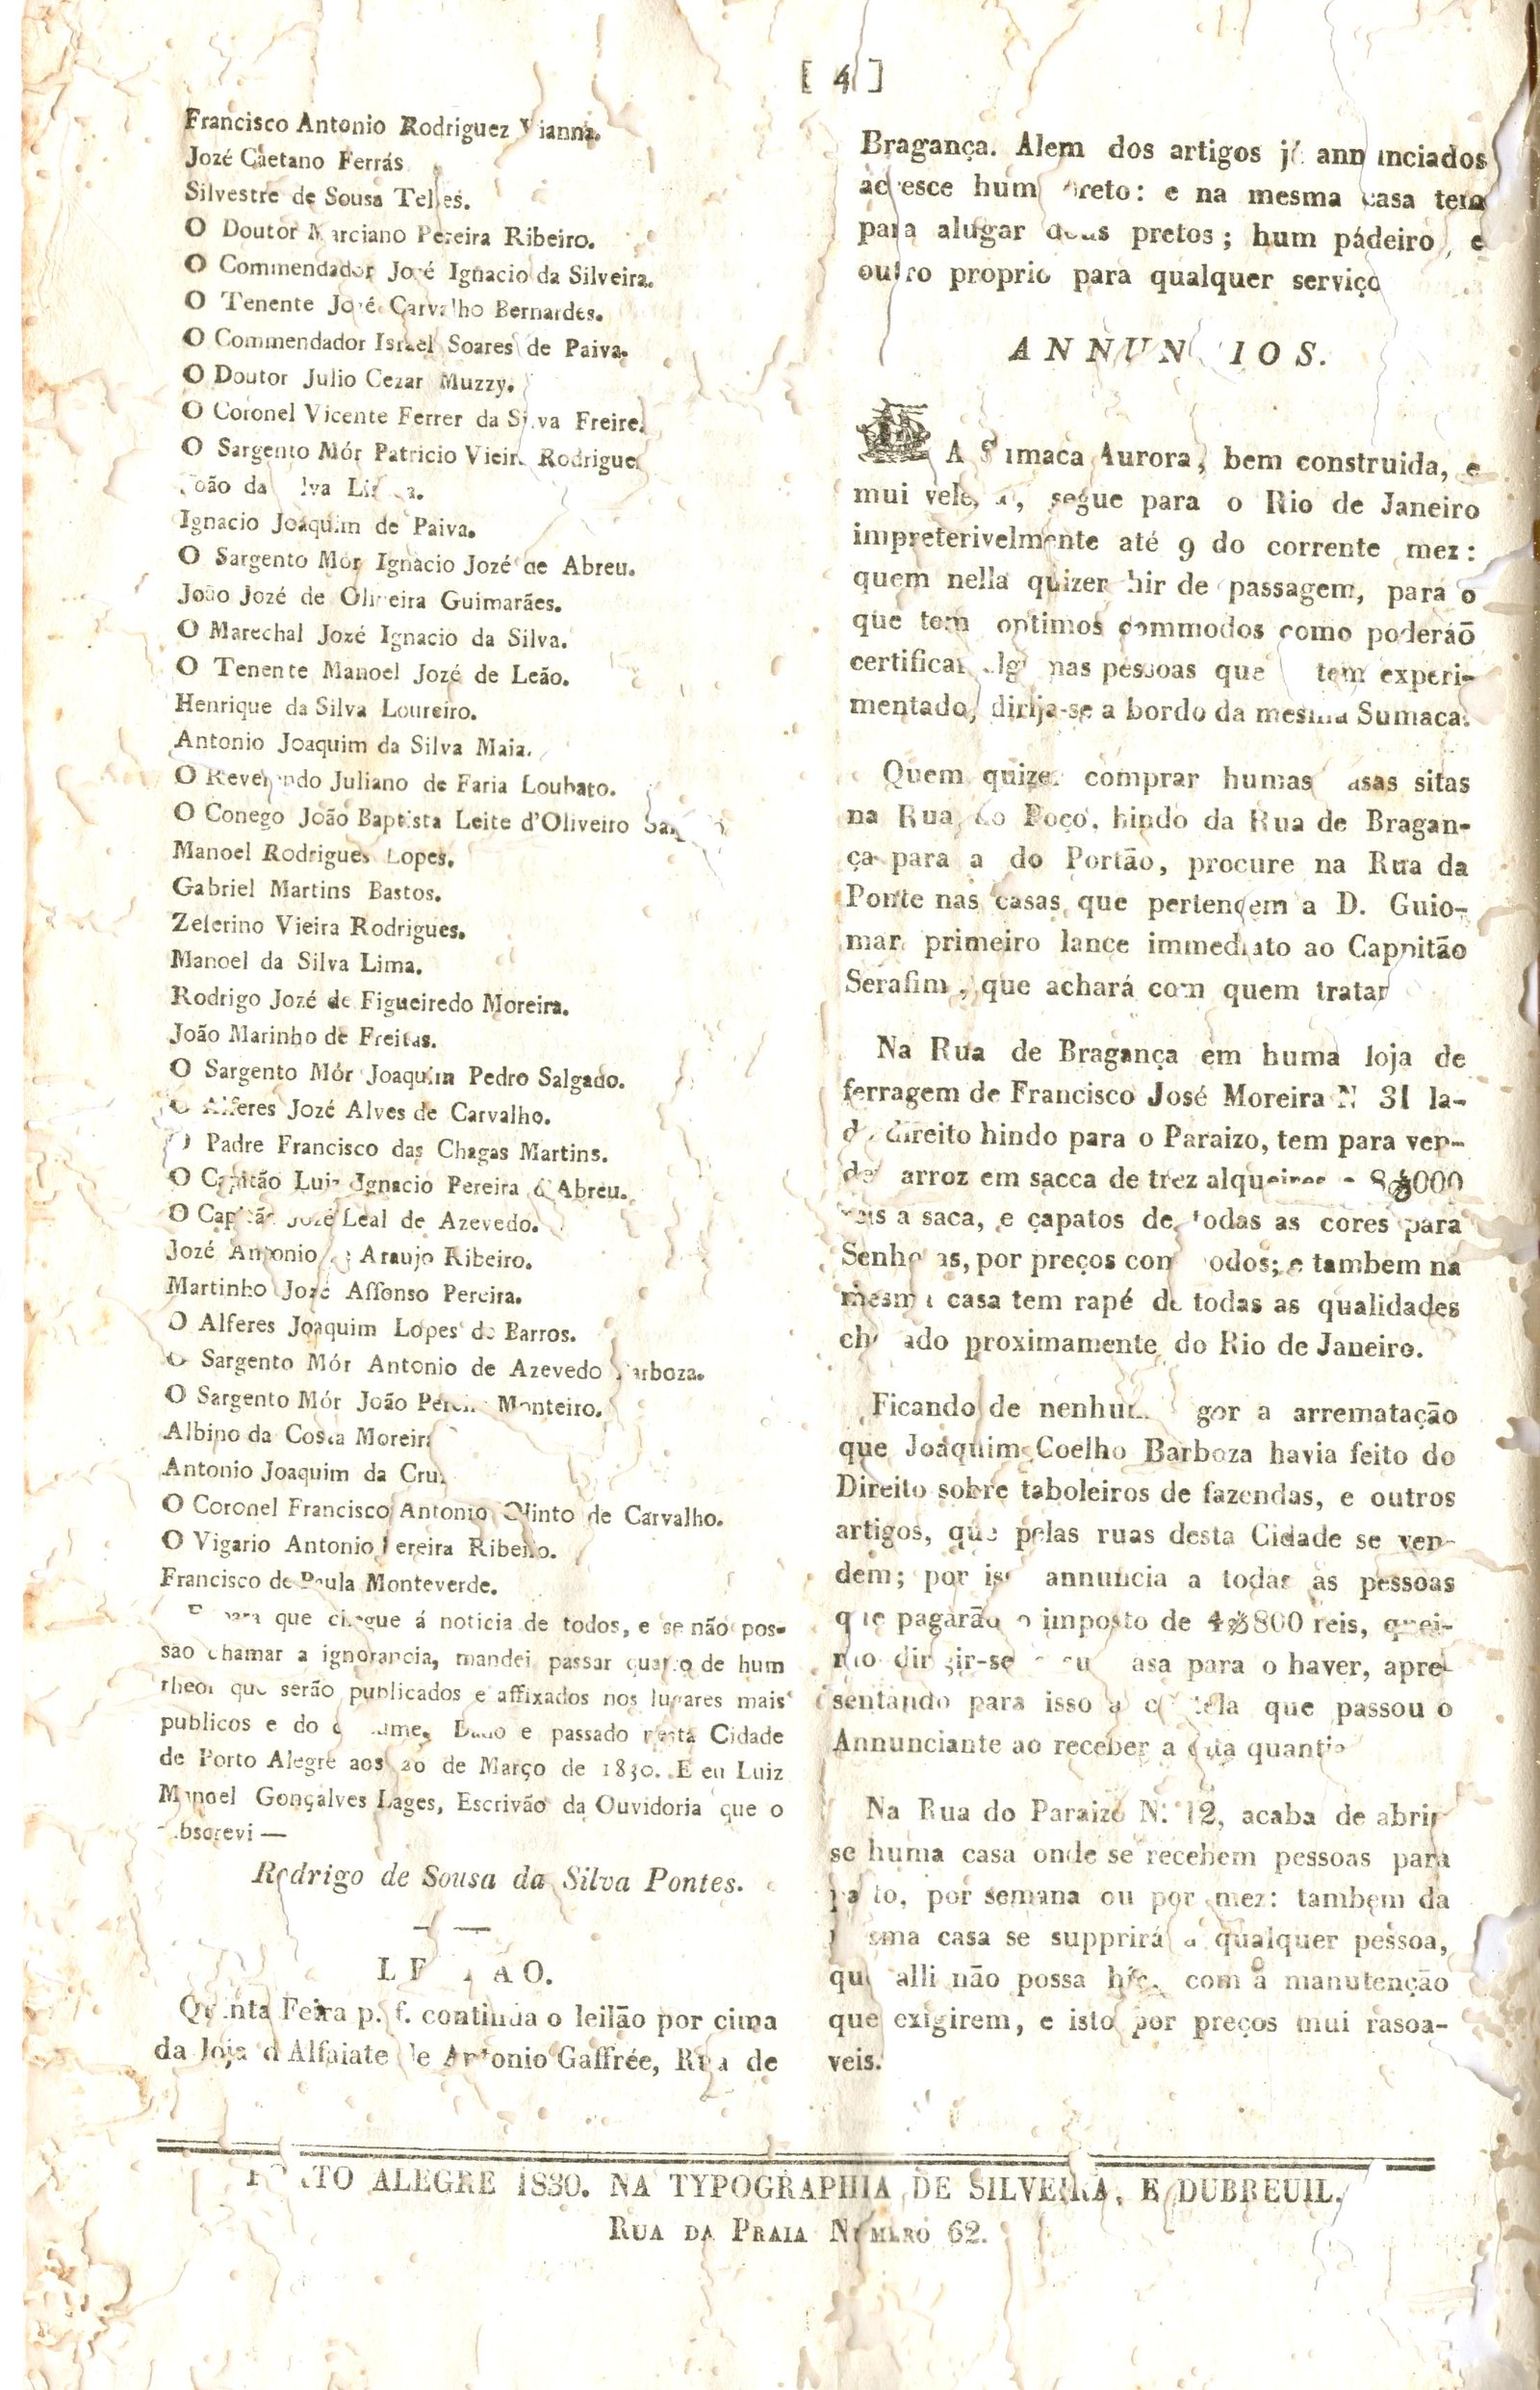 [ 4 ]
Francisco Antonio Rodriguez Vianna.
Jozé Caetano Ferrás
Silvestre de Sousa Telles.
O Doutor Marciano Pereira Ribeiro.
O Commendador José Ignacio da Silveira.
O Tenente José Carvalho Bernardes.
O Commendador Israel Soares de Paiva.
O Doutor Julio Cezar Muzzy.
O Coronel Vicente Ferrer da Silva Freire.
O Sargento Mór Patricio Vieira Rodrigues
João da Silva
Ignacio Joaquim de Paiva.
O Sargento Mór Ignacio Jozé de Abreu.
João Jozé de Oliveira Guimarães.
O Marechal Jozé Ignacio da Silva.
O Tenente Manoel Jozé de Leão.
Henrique da Silva Loureiro.
Antonio Joaquim da Silva Maia.
O Reverendo Juliano de Faria Loubato.
O Conego João Baptista Leite d'Oliveiro
Manoel Rodrigues Lopes.
Gabriel Martins Bastos.
Zeferino Vieira Rodrigues.
Manoel da Silva Lima.
Rodrigo Jozé de Figueiredo Moreira.
João Marinho de Freitas.
O Sargento Mór Joaquim Pedro Salgado.
O Alferes Jozé Alves de Carvalho.
O Padre Francisco das Chagas Martins.
O Capitão Luiz Ignacio Pereira d'Abreu.
O Capitão Jozé Leal de Azevedo.
Jozé Antonio de Araujo Ribeiro.
Martinho Jozé Affonso Pereira.
O Alferes Joaquim Lopes de Barros.
O Sargento Mór Antonio de Azevedo Barboza.
O Sargento Mór João Pereira Monteiro.
Albino da Costa Moreira
Antonio Joaquim da Cruz
O Coronel Francisco Antonio Olinto de Carvalho.
O Vigario Antonio Pereira Ribeiro.
Francisco de Paula Monteverde.
E para que chegue á noticia de todos, e se não pos-
são chamar a ignorancia, mandei passar quatro de hum
theor que serão publicados e affixados nos lugares mais
publicos e do costume. Dado e passado nesta Cidade
de Porto Alegre aos 20 de Março de 1830. E eu Luiz
Manoel Gonçalves Lages, Escrivão da Ouvidoria que o
subscrevi —
Rodrigo de Sousa da Silva Pontes.
LEILÃO.
Quinta Feira p. f. continua o leilão por cima
da loja d'Alfaiate de Antonio Gaffrée, Rua de
Bragança. Alem dos artigos já annunciados
acresce hum preto: e na mesma casa tem
para alugar dous pretos; hum pádeiro, e
outro proprio para qualquer serviço
ANNUNCIOS.
A Sumaca Aurora, bem construida, e
mui veleira, segue para o Rio de Janeiro
impreterivelmente até 9 do corrente mez:
quem nella quizer hir de passagem, para o
que tem optimos commodos como poderáõ
certificar algumas pessoas que tem experi-
mentado, dirija-se a bordo da mesma Sumaca.
Quem quizer comprar humas casas sitas
na Rua do Poço, hindo da Rua de Bragan-
ça para a do Portão, procure na Rua da
Ponte nas casas que pertencem a D. Guio-
mar primeiro lance immediato ao Cappitão
Serafim, que achará com quem tratar
Na Rua de Bragança em huma loja de
ferragem de Francisco José Moreira N 31 la-
do direito hindo para o Paraizo, tem para ven-
der arroz em sacca de trez alqueires a 8$000
reis a saca, e çapatos de todas as cores para
Senhoras, por preços commodos; e tambem na
mesma casa tem rapé de todas as qualidades
chegado proximamente do Rio de Janeiro.
Ficando de nenhum vigor a arrematação
que Joaquim Coelho Barboza havia feito do
Direito sobre taboleiros de fazendas, e outros
artigos, que pelas ruas desta Cidade se ven-
dem; por isso annuncia a todas as pessoas
que pagarão o imposto de 4$800 reis, quei-
rão dirigir-se a sua casa para o haver, apre-
sentando para isso a cautela que passou o
Annunciante ao receber a dita quantia
Na Rua do Paraizo N. 12, acaba de abrir
se huma casa onde se recebem pessoas para
pasto, por semana ou por mez: tambem da
mesma casa se supprirá a qualquer pessoa,
que alli não possa hir, com a manutenção
que exigirem, e isto por preços mui rasoa-
veis.
PORTO ALEGRE 1830. NA TYPOGRAPHIA DE SILVEIRA, E DUBREUIL.
RUA DA PRAIA NUMERO 62.